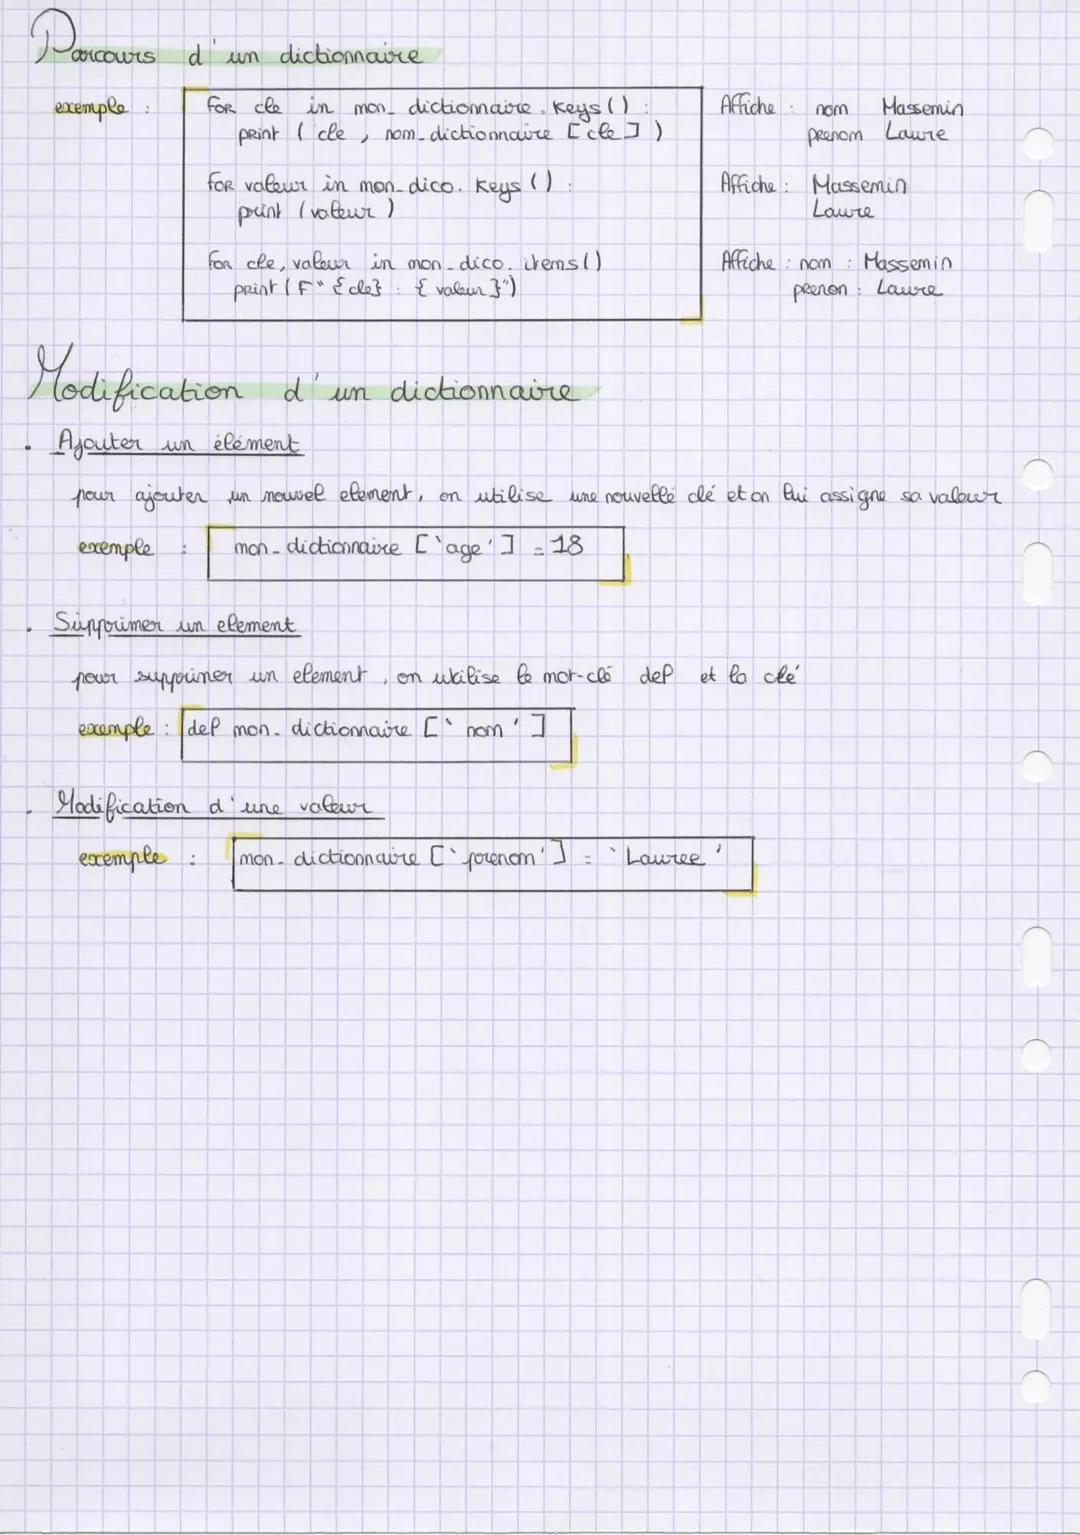 Parcours d'un dictionnaire
exemple : for cle in mon_dictionnaire.keys() : Affiche : nom Massemin
print (cle, nom_dictionnaire [cle]) prenom Laure
for valeur in mon_dico.keys() : Affiche : Massemin
print (valeur) Laure
for cle, valeur in mon_dico.items() Affiche : nom : Massemin
print (F"{cle} : {valeur}") prenon : Laure
Modification d'un dictionnaire
. Ajouter un élément
pour ajouter un nouvel element, on utilise une nouvellé clé et on lui assigne sa valeur
exemple : mon_dictionnaire ['age'] = 18
. Supprimer un element
pour supprimer un element, on utilise le mot-clé del et la clé
exemple : del mon_dictionnaire ['nom']
. Modification d'une valeur
exemple : mon_dictionnaire ['prenom'] = 'Lauree'